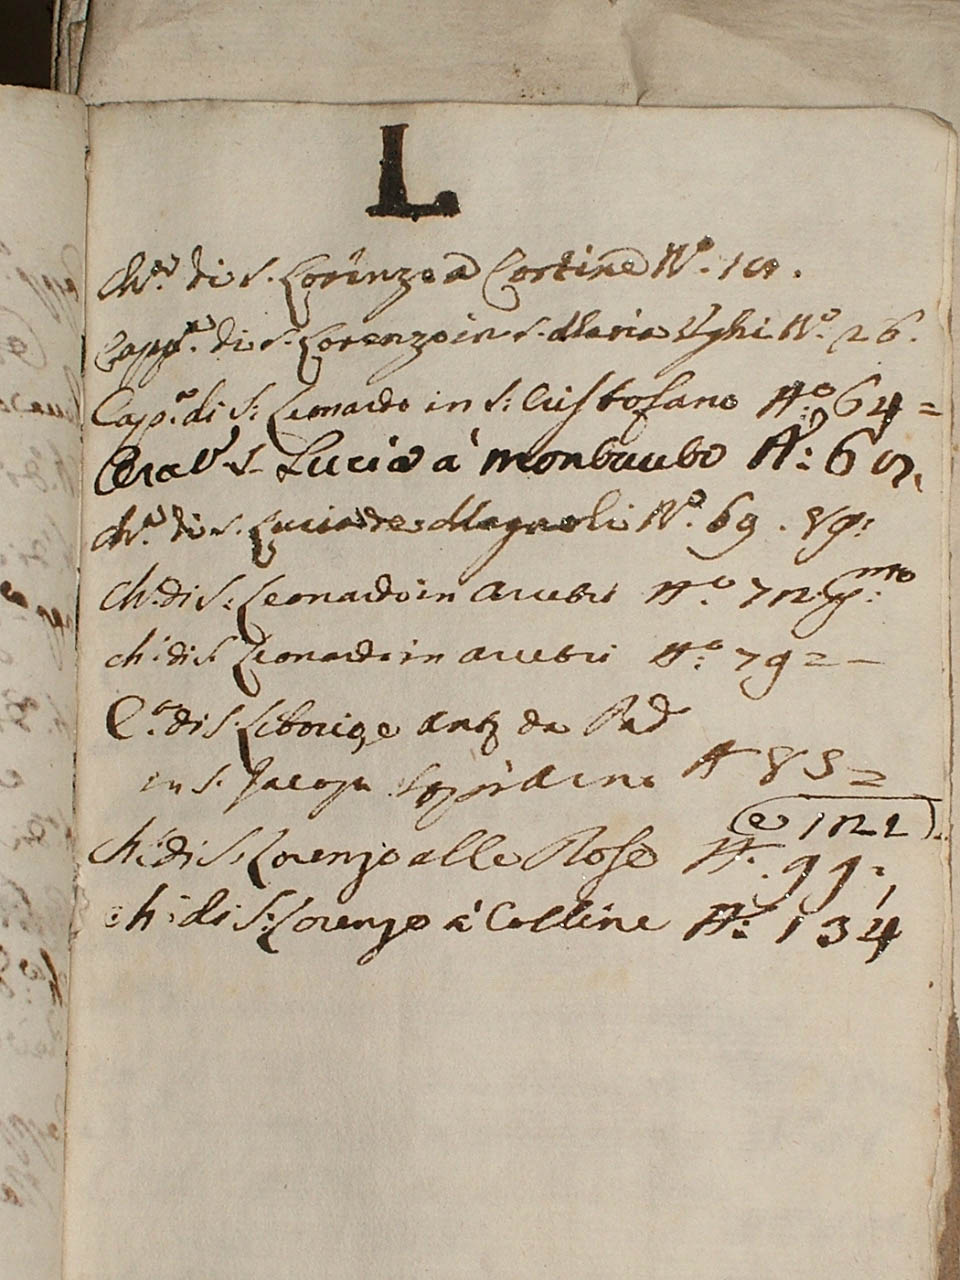 L
Ch.ª di S. Lorenzo a Cortine N.º 10.
Capp.ª di S. Lorenzo in S. Maria Ughi N.º 26.
Capp.ª di S: Leonardo in S: Cristofano N.º 64=
S. Lucia à Monbuubo N.º: 65.
Ch.ª di S. Lucia de Magnoli N.º 69.
Ch: di S: Leonardo in Arcetri N.º 72
ch: di S. Leonardo in Arcetri N.º: 79=
C.ª di S. Liborio, e Ant.º da Pad.ª
in S. Jacopo N 85=
e 122
Ch: di S. Lorenzo alle Rose N. 99.
Ch: di S: Lorenzo à Colline N.º: 134